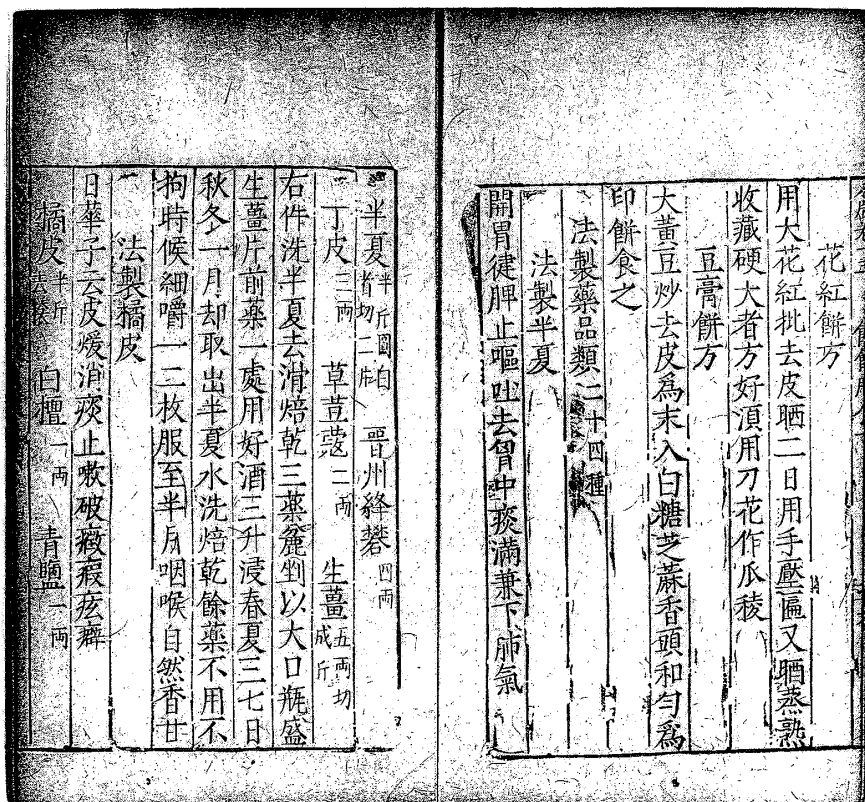 花紅餅方
用大花紅批去皮晒二日用手壓匾又晒蒸熟
收藏硬大者方好湏用刀花作瓜稜
豆膏餅方
大黃豆炒去皮爲末入白糖芝蔴香頭和勻爲
印餅食之
法製藥品類二十四種
法製半夏
開胃徤脾止嘔吐去胷中痰滿兼下肺氣
半夏半斤圓白者切二片 晋州絳礬四兩
丁皮三兩 草荳蔻二兩 生薑五兩切成斤
右件洗半夏去滑焙乾三藥麄剉以大口瓶盛
生薑片前藥一處用好酒三升浸春夏三七日
秋冬一月却取出半夏水洗焙乾餘藥不用不
拘時候細嚼一二枚服至半月咽喉自然香甘
法製橘皮
日華子云皮煖消痰止嗽破癥瘕痃癖
橘皮半斤去穰 白檀一兩 青鹽一兩